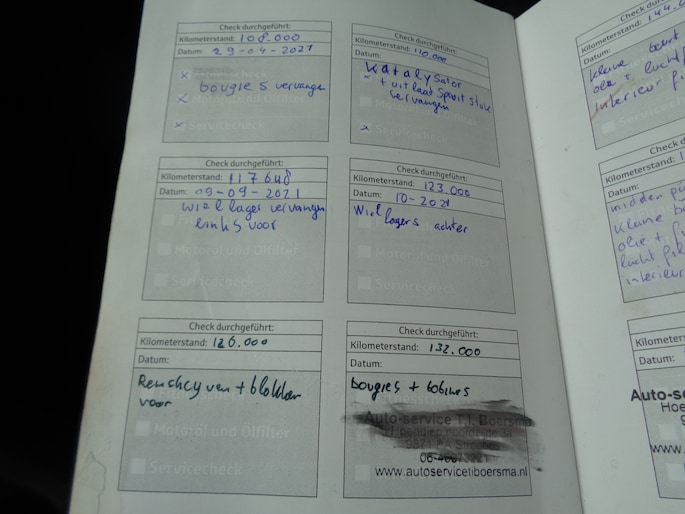 Check durchgeführt:
Kilometerstand: 108.000
Datum: 29-04-2021
bougies vervangen
Motoröl und Ölfilter
Servicecheck
Check durchgeführt:
Kilometerstand: 110.000
Datum:
Katalysator
+ uitlaat Spruit stuk
vervangen
Servicecheck
Check durchgeführt:
Kilometerstand: 117648
Datum: 09-09-2021
wiel lager vervangen
links voor
Motoröl und Ölfilter
Servicecheck
Check durchgeführt:
Kilometerstand: 123.000
Datum: 10-2021
Wiel lagers achter
Motoröl und Ölfilter
Servicecheck
Check durchgeführt:
Kilometerstand: 126.000
Datum:
voor
Motoröl und Ölfilter
Servicecheck
Check durchgeführt:
Kilometerstand: 132.000
Datum:
bougies + bobines
Auto-service T.I. Boersma
www.autoservicetiboersma.nl
Check d
Kilometerstand: 144.
Datum:
kleine beurt
olie + lucht
interieur
Servicecheck
Check
Kilometerstand:
Datum:
midden
kleine
olie +
lucht
interieur
Kilomet
Datum:
Auto-se
Hoe
www.